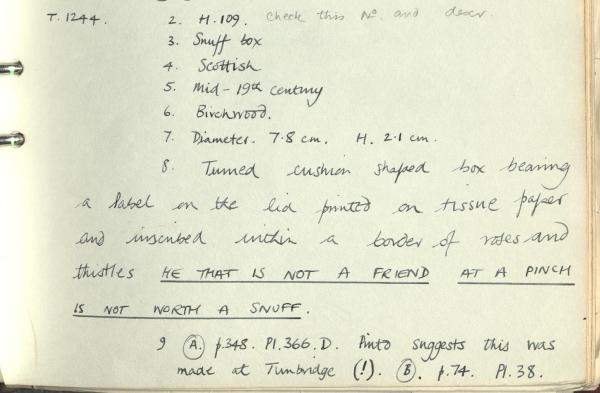 T.1244. 2. H.109. Check this No. and descr.
3. Snuff box
4. Scottish
5. Mid-19th century
6. Birchwood.
7. Diameter. 7.8 cm. H. 2.1 cm.
8. Turned cushion shaped box bearing
a label on the lid printed on tissue paper
and inscribed within a border of roses and
thistles HE THAT IS NOT A FRIEND AT A PINCH
IS NOT WORTH A SNUFF.
9 (A.) p.348. Pl.366.D. Pinto suggests this was
made at Tunbridge (!). (B). p.74. Pl.38.